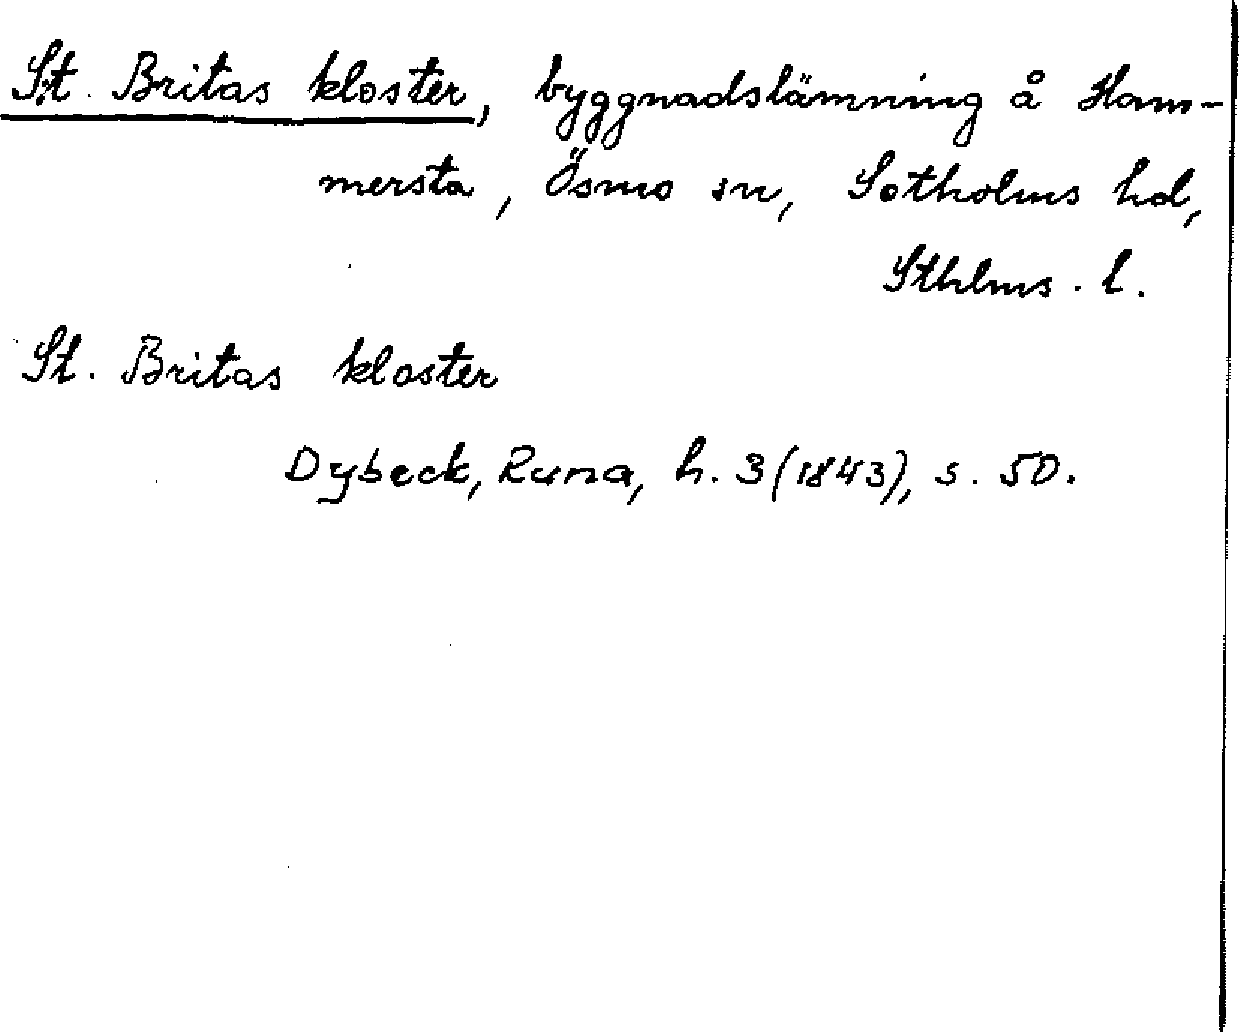 St. Britas kloster, byggnadslämning å Ham-
mersta, Ösmo sn, Sotholms hd,
Sthlms. l.
St. Britas kloster
Dybeck, Runa, h. 3 (1843), s. 50.